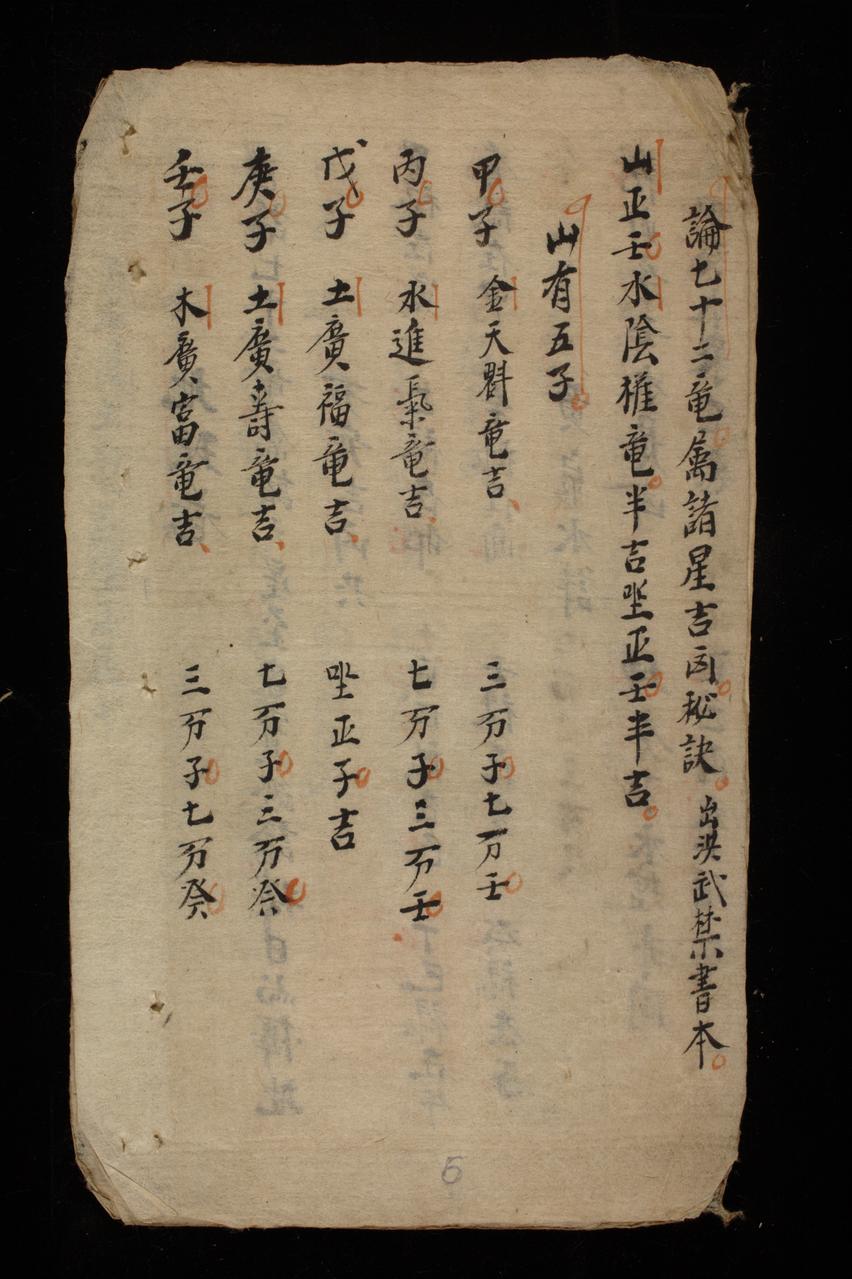 論七十二竜属諸星吉凶秘訣 出洪武禁書本
山正壬水陰權竜半吉坐正壬半吉
山有五子
甲子 金天斟竜吉 三分子七分壬
丙子 水進氣竜吉 七分子三分壬
戊子 土廣福竜吉 坐正子吉
庚子 土廣壽竜吉 七分子三分癸
壬子 木廣富竜吉 三分子七分癸
5